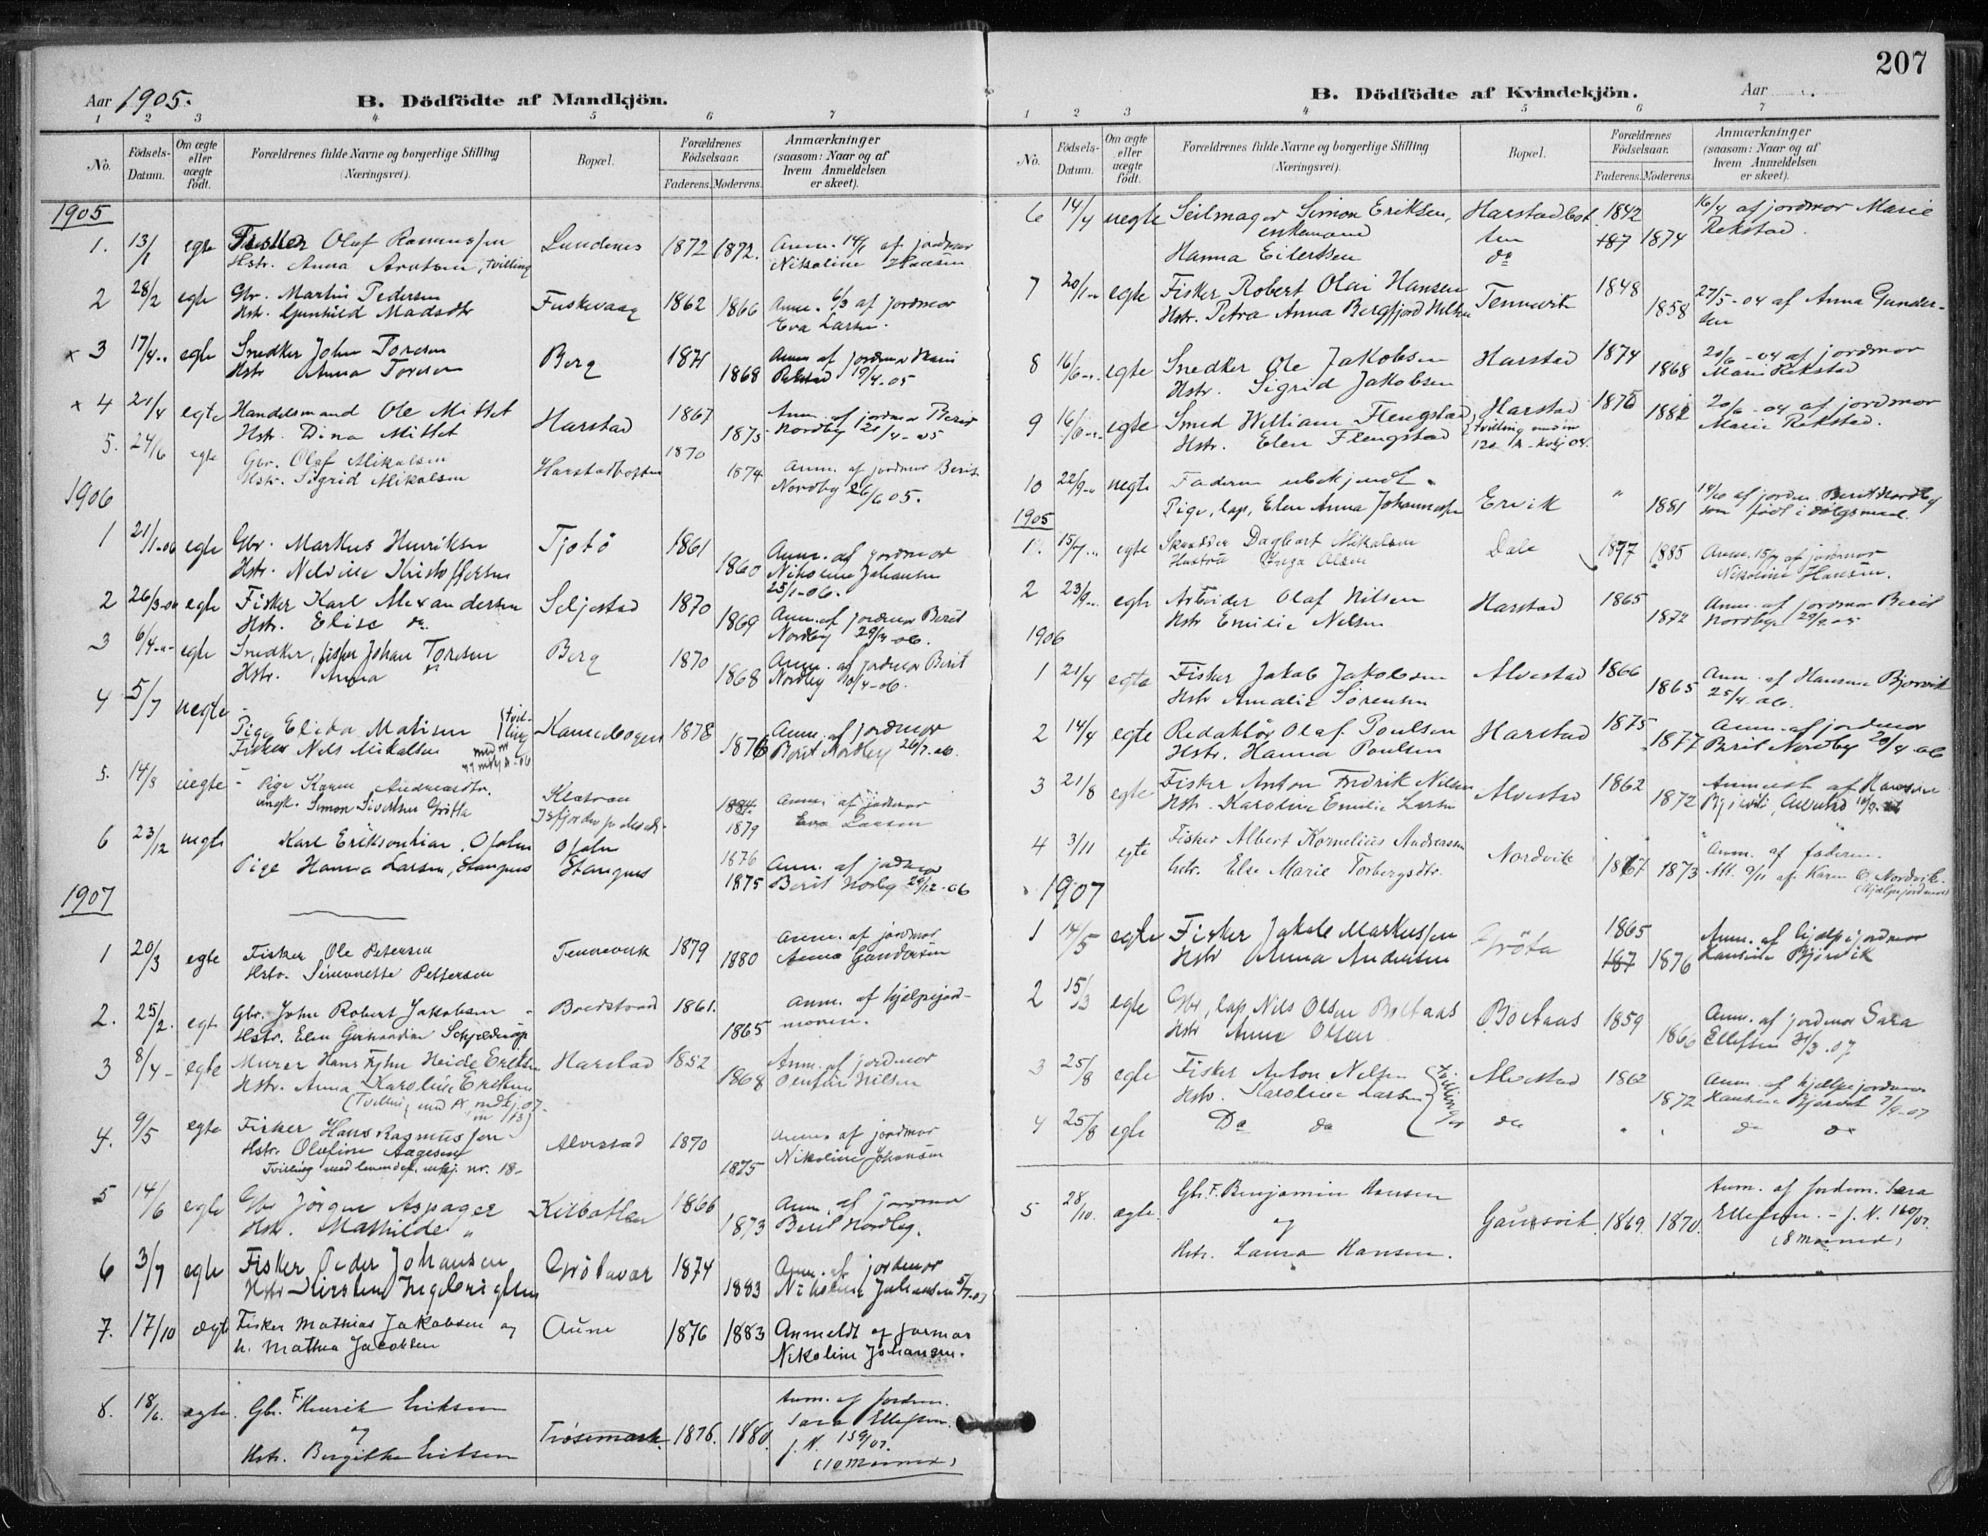 207
Aar 1905.
B. Dödfödte af Mandkjön.
1 2 3 4 5 6 7
No. Födsels-Datum. Om ægte eller uægte födt. Forældrenes fulde Navne og borgerlige Stilling (Næringsvei). Bopæl. Forældrenes Födselsaar. Faderens. Moderens. Anmærkninger (saasom: Naar og af hvem Anmeldelsen er skeet).
1905
1. 13/1 egte Fisker Olaf Rasmussen Lundenes 1872 1872. Anm. 14/1 af jordmor
Hstr. Anna Arntsen, tvilling Nikoline Hansen
2 28/2 egte Gbr. Martin Pedersen Fuskevaag 1862 1866 Anm. 6/3 af jordmor
Hst. Gunhild Madsdtr Eva Larsen.
x 3 17/4 egte Snedker John Toresen Berg 1871 Anm af jordmor Marie
Hstr Anna Toresen 1868 Rekstad 19/4-05
x 4 21/4 egte Handelsmand Ole Mittet Harstad 1867 Anm. af jordmor Berit
Hstr. Dina Mittet 1875 Nordby 25/4-05
5. 24/6 egte Gbr. Olaf Mikalsen Harstadbotten 1870
Hstr. Sigrid Mikalsen 1874 Anm. af jordmor Berit
Nordby 26/6 05.
1906
1 21/1-06 egte Gbr. Markus Henriksen Tjotö 1861 Anm. af jordmor
Hstr. Kristoffersen 1860 Nikoline Johansen
25/1-06.
2 26/3-06 egte Fisker Karl Alexandersen Seljestad 1870 Anm. af jordmor Berit
Hstr. Elise do. 1869 Nordby
3 6/4 egte Snedker, Johan Toresen Berg 1870 Anm. af jordmor Berit
Hstr. Anna 1868 Nordby 10/4-06.
4 5/7 uegte Pige Elida Matisen tvilling Kanebogen 1878 Anm. af jordmor
Fisker Nels Mikalsen 1876 Berit Nordby 26/7-06
5. 14/8 uegte Pige Karen Andreasdtr. 1884. Anm. af jordmor
ungk. Simon Sivertsen Grötta 1879 Eva Larsen
6 23/12 uegte Karl Eriksen Ofoten 1876 Anm. af jordmor
Pige Hanna Larsen, Stangnes Stangnes 1875 Berit Norby 28/12-06
1907
1 20/3 egte Fisker Ole Petersen Tennevik 1879 Anm. af jordmor
Hstr. Simonette Pettersen 1880 Anna Gundersen
2. 25/2. egte Gbr. John Robert Jakobsen Bredstrand 1861. Anm. af hjelpejord-
Hstr. Elen Gerhardine Schjelderup 1865 moren.
3 8/4 egte Murer Hans Heide Eriksen Harstad 1852 Anm. af jordmor
Hstr. Anna Karoline Eriksen 1864 Nilsen
4. 9/5 egte Fisker Hans Rasmussen Alvestad 1870 Anm. af jordmor
Hstr. Olufine Aagesen 1875 Nikoline Johansen
Tvilling med levendef. mkj. nr. 18-
5 14/6 egte Gbr Jörgen Aspager Kilbotten 1866 Anm. af jordmor
Hstr. Mathilde " 1873 Berit Nordby.
6 3/7 egte Fisker Peder Johansen Grötavær 1874 Anm. af jordmor
Hstr Kirsten Ingebrigtsen 1883 Nikoline Johansen 5/7-07
7. 17/10 ægte Fisker Mathias Jakobsen og Aune 1876 1883 Anmeldt af jormor
h. Mathea Jacobsen Nikoline Johansen.
8. 18/6. ægte. Gbr. F. Henrik Eriksen Anm. af Jordem.
og Trösemark. 1876. 1880. Sara Ellefsen.
Hstr. Bergitha Eriksen j. N. 159/07.
(10 Maaned)
B. Dödfödte af Kvindekjön.
Aar
1 2 3 4 5 6 7
No. Födsels-Datum. Om ægte eller uægte födt. Forældrenes fulde Navne og borgerlige Stilling (Næringsvei). Bopæl. Forældrenes Födselsaar. Faderens. Moderens. Anmærkninger (saasom: Naar og af hvem Anmeldelsen er skeet).
6 14/4 uegte Seilmager Simon Eriksen, Harstadbot- 1842 16/4 af jordmor Marie
enkemand ten 187 1874 Rekstad.
Hanna Eilertsen do
7 20/1 egte Fisker Robert Olai Hansen Tennevik 1848 27/5-04 af Anna Gunder-
Hstr. Petra Anna Bergfjord 1858 sen
8 16/6 egte Snedker Ole Jakobsen Harstad 1874 20/6-04 af jordmor
Hstr. Sigrid Jakobsen 1868 Marie Rekstad
9 16/6 egte Smed William Flengstad, Harstad 1876 1882 20/6-04 af jordmor
Hstr. Elen Flengstad Marie Rekstad.
10 22/9 uegte Faderen ubekjendt. "
Pige, lap, Elen Anna Johannesen Ervik 1881 af jordm Berit Nordby
som født i dølgsmaal.
1905
1. 15/7 egte Skrædder Dagbart Mikalsen Dale 1877 1885 Anm. 15/7 af jordmor
Hustru Inga Olsen Nikoline Hansen.
2 23/9 egte Arbeider Olaf Nilsen Harstad 1865 Anm. af jordmor Berit
Hstr Emilie Nelsen 1872 Nordby
1906
1 21/4 egte Fisker Jakob Jakobsen Alvestad 1866 Anm. af Hansine Bjørvik
Hstr Amalie Sörensen 1865 25/4 06.
2 14/4 egte Redaktör Olaf Poulsen Harstad 1875 Anm. af jordmor
Hstr. Hanna Poulsen 1877 Berit Nordby 20/4 06
3 21/8 egte Fisker Anton Fredrik Nilsen Alvestad 1862 Anmeldt af Hansine
Hstr. Karoline Emilie Larsen 1872
4 3/11 egte Fisker Albert Kornelius Andreassen Nordvik Anm. af faderen.
hstr. Else Marie Torbergsdtr. 1867 1873 Att. 9/11 af Karen Nordvik
(hjælpejordmor)
1907
1 14/5 egte Fisker Jakob Markussen Gröta 1865 Anm. af hjælpejordmor
Hstr Anna Andersen 187 1876 Hansine Bjørvik
2 15/3 egte Gbr, lap, Nils Olsen Boltaas Boltaas 1859 Anm. af jordmor Sara
Hstr Anne Olsen 1866 Ellefsen 21/3.07
3 25/8 egte Fisker Anton Nilsen Tvillinger Alvestad 1862 Anm. af hjælpejordmor
Hstr. Karoline Larsen 1872 Hansine Bjørvik 7/9-07
4 25/8 egte Do do do " " do do
5 28/10. ægte. Gbr. F. Benjamin Hansen Anm. af Jordem. Sara
og Gausvik. 1869. 1870. Ellefsen. - j. N. 160/07.
Hstr. Laura Hansen. (8 Maaned)